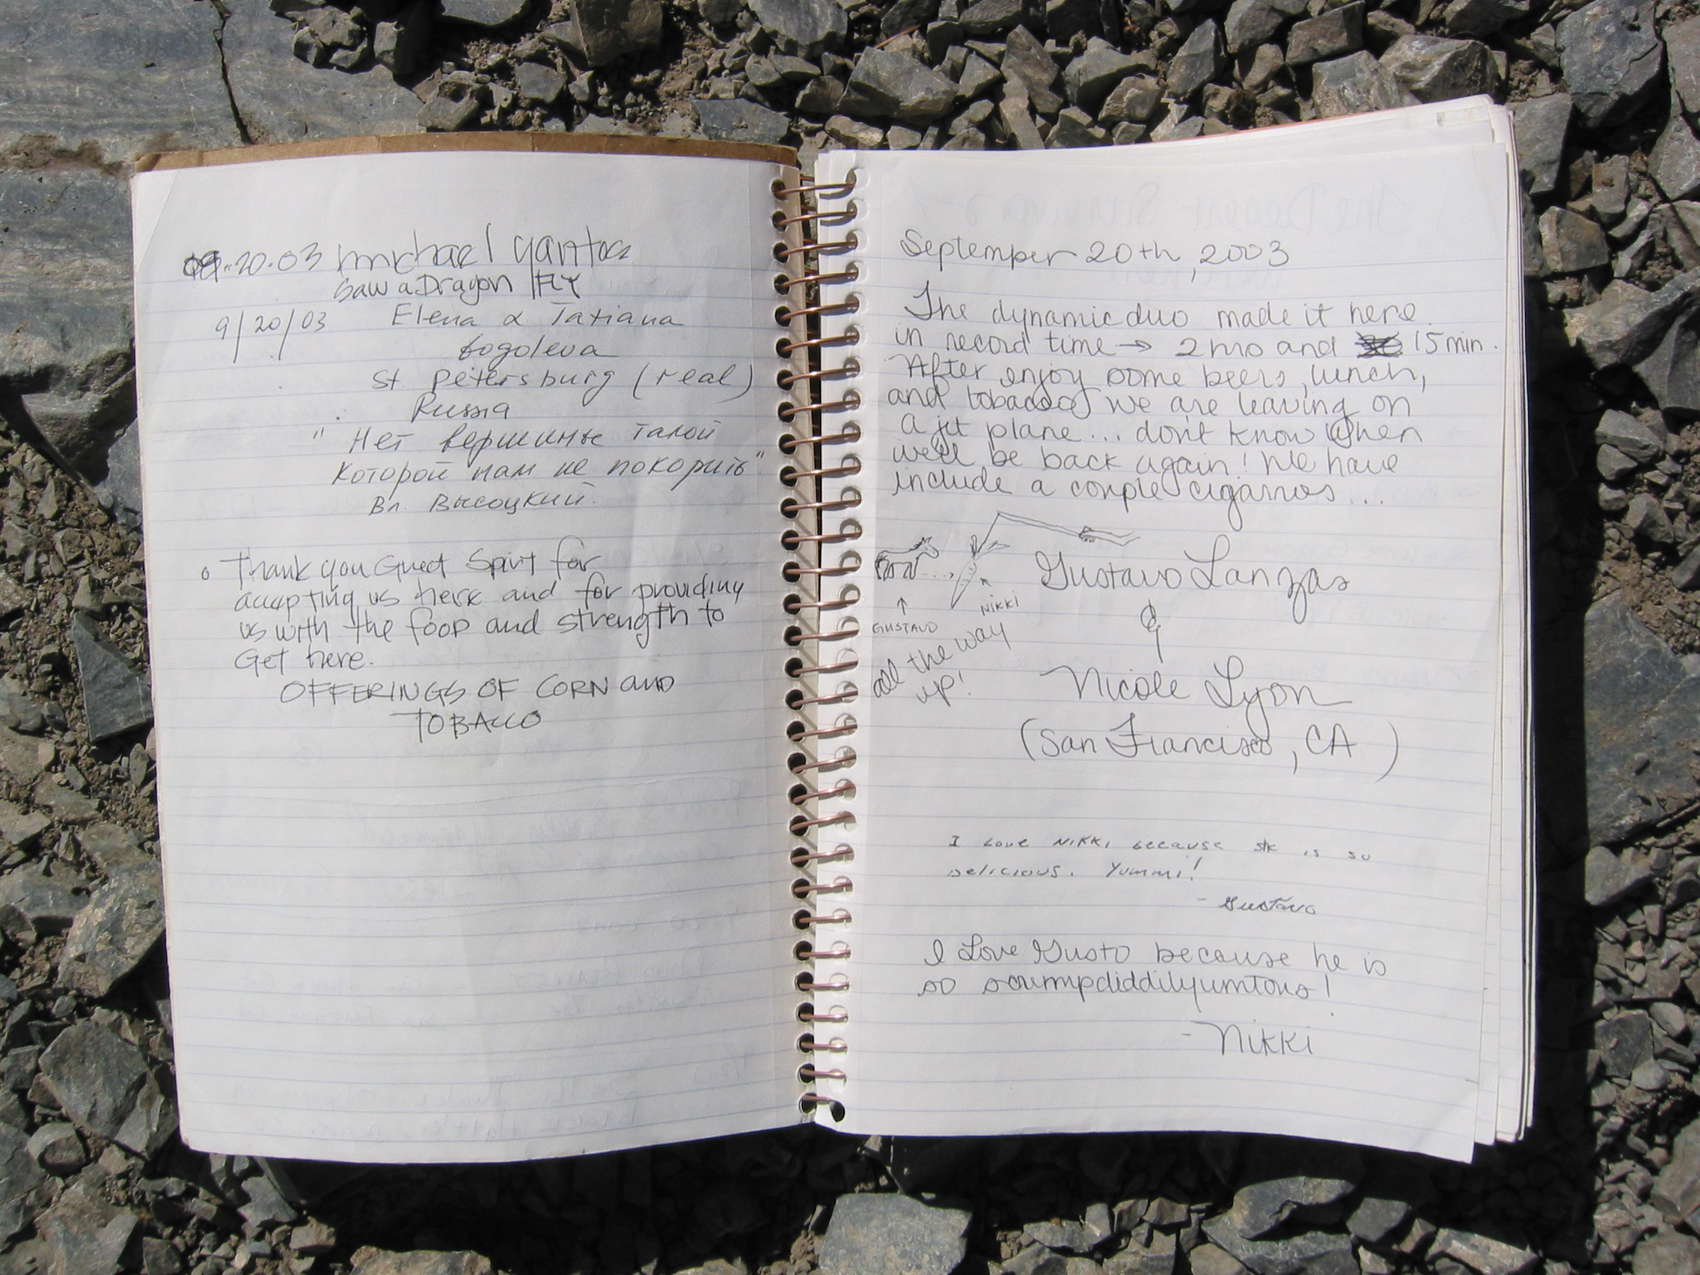 09.20.03 Michael
Saw a Dragon Fly
9/20/03 Elena & Tatiana
Gogoleva
St Petersburg (real)
Russia
"Нет вершины такой
которой нам не покорить"
Вл. Высоцкий.
Thank you Great Spirit for
accepting us here and for providing
us with the food and strength to
Get here.
OFFERINGS OF CORN and
TOBACCO
September 20th, 2003
The dynamic duo made it here
in record time → 2 hrs and 15 min.
After enjoy some beers, lunch,
and tobacco, we are leaving on
a jet plane... don't know when
we'll be back again! We have
include a couple cigarros...
GUSTAVO
NIKKI
all the way
up!
Gustavo Lanzas
&
Nicole Lyon
(San Francisco, CA)
I love Nikki because she is so
delicious. Yummi!
- Gustavo
I Love Gusto because he is
so scrumpdiddilyumtous!
- Nikki